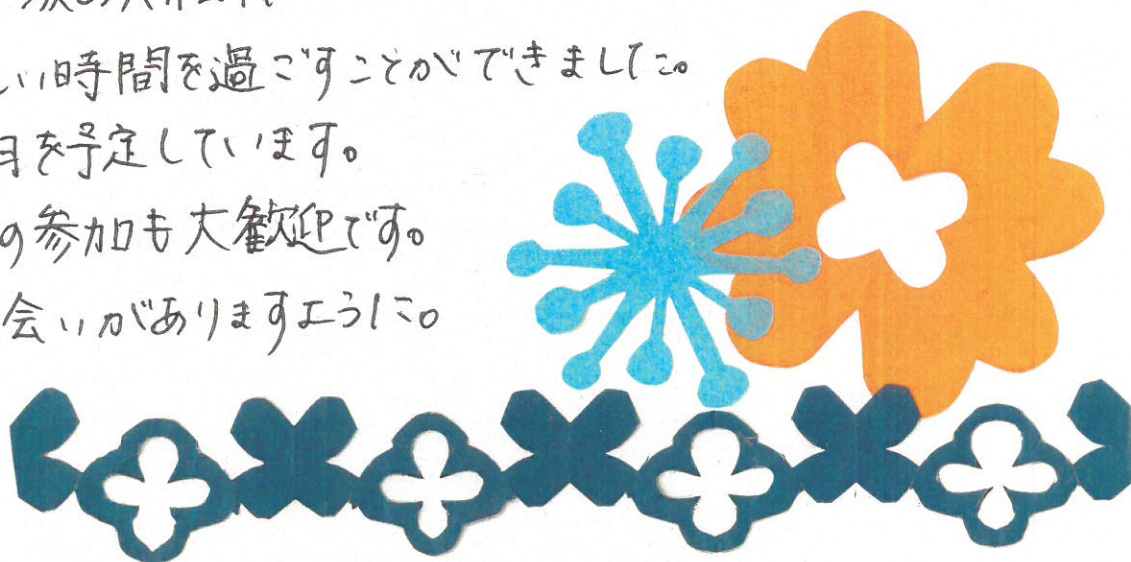 い時間を過ごすことができました。
月を予定しています。
の参加も大歓迎です。
会いがありますように。